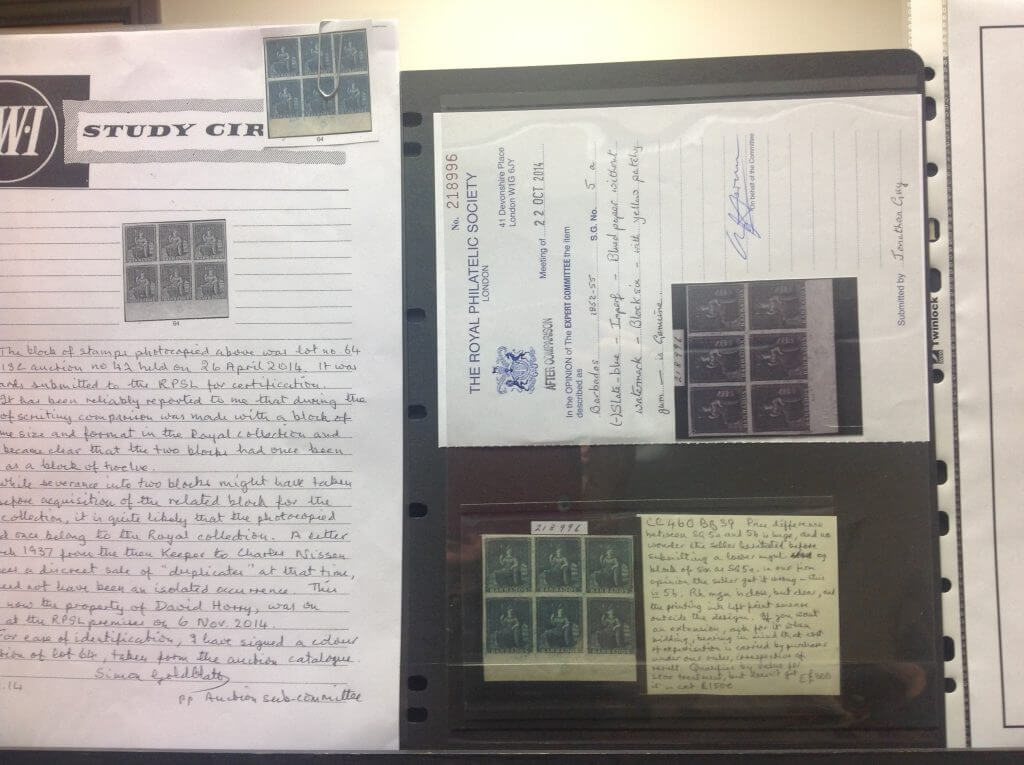 W·I
STUDY CIR
64
64
The block of stamps photocopied above was lot no 64
auction no 42 held on 26 April 2014. It was
submitted to the RPSL for certification.
It has been reliably reported to me that during the
of scrutiny comparison was made with a block of
size and format in the Royal collection and
became clear that the two blocks had once been
as a block of twelve.
While severance into two blocks might have taken
acquisition of the related block for the
collection, it is quite likely that the photocopied
once belong to the Royal collection. A letter
1937 from the then Keeper to Charles Nissen
a discreet sale of "duplicates" at that time,
need not have been an isolated occurrence. This
now the property of David Horry, was on
at the RPSL premises on 6 Nov. 2014.
For ease of identification, I have signed a colour
of lot 64, taken from the auction catalogue.
Simon Goldblatt
.14
pp Auction sub-committee
No. 218996
THE ROYAL PHILATELIC SOCIETY
LONDON
41 Devonshire Place
London W1G 6JY
Meeting of 22 OCT 2014
AFTER COMPARISON
In the OPINION of The EXPERT COMMITTEE the item
described as
Barbados 1852-55 S.G. No. 5 a
(-) Slate-blue - Imperf - Blued paper without
watermark - Block six - with yellow patchy
gum - is Genuine
On behalf of the Committee
218996
Submitted by Jonathan Guy
Twinlock
218996
BARBADOS BARBADOS BARBADOS
BARBADOS BARBADOS BARBADOS
CC460 BB 39 Price difference
between SG 5a and 5b is huge, and no
wonder the seller hesitated before
submitting a lower mgnl
block of six as SG5a, in our firm
opinion the seller got it wrong - this
is 5b. Rh mgn is close, but clear, and
the printing ink left point
outside the design. If you want
an extension, ask for it when
bidding, bearing in mind that cost
of expertisation is carried by purchaser
under our rules, irrespective of
result. Qualifies by value for
star treatment, but doesn't get
it - cat £1500